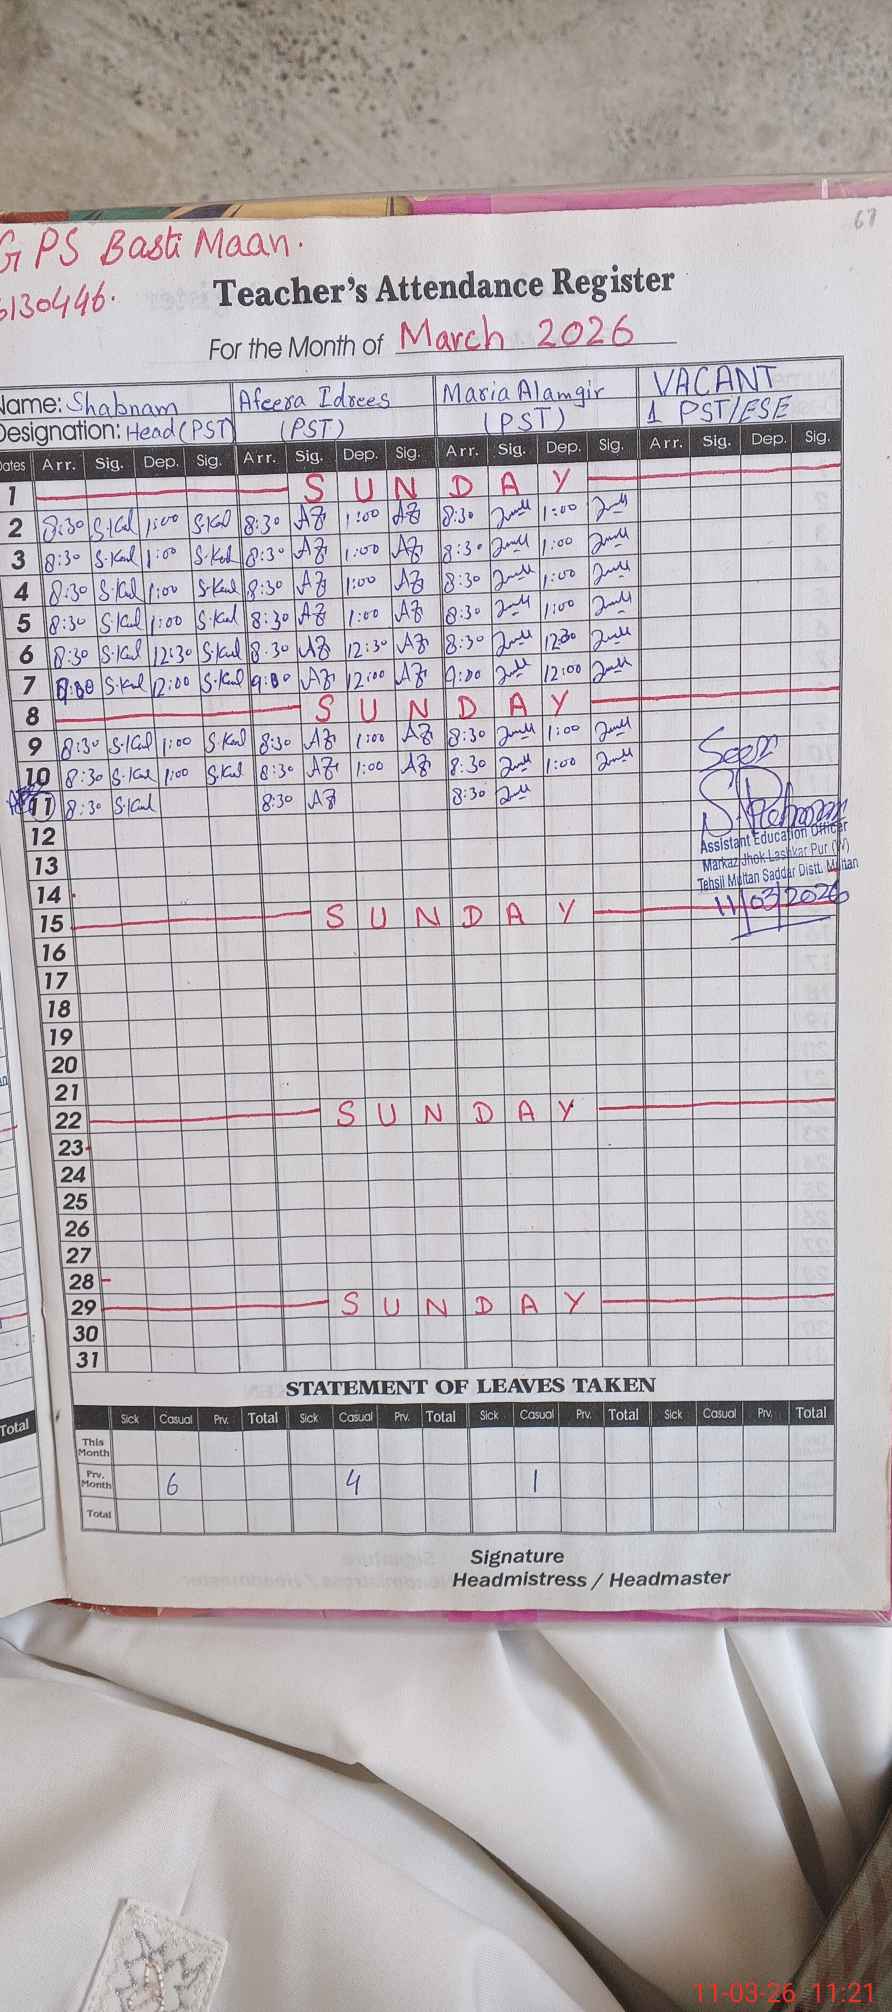 67
GPS Basti Maan.
6130446.
Teacher's Attendance Register
For the Month of March 2026
Name: Shabnam Afeera Idrees Maria Alamgir VACANT
Designation: Head (PST) (PST) (PST) 1 PST/ESE
Dates Arr. Sig. Dep. Sig. Arr. Sig. Dep. Sig. Arr. Sig. Dep. Sig. Arr. Sig. Dep. Sig.
1 SUNDAY
2 8:30 1:00 8:30 AZ 1:00 AZ 8:30 1:00
3 8:30 1:00 8:30 AZ 1:00 AZ 8:30 1:00
4 8:30 1:00 8:30 AZ 1:00 AZ 8:30 1:00
5 8:30 1:00 8:30 AZ 1:00 AZ 8:30 1:00
6 8:30 12:30 8:30 AZ 12:30 AZ 8:30 12:30
7 9:00 12:00 9:00 AZ 12:00 AZ 9:00 12:00
8 SUNDAY
9 8:30 1:00 8:30 AZ 1:00 AZ 8:30 1:00
10 8:30 1:00 8:30 AZ 1:00 AZ 8:30 1:00
11 8:30 8:30 AZ 8:30
12
13
14
15 SUNDAY
16
17
18
19
20
21
22 SUNDAY
23
24
25
26
27
28
29 SUNDAY
30
31
Seen
Assistant Education Officer
Markaz Jhok Lashkar Pur (W)
Tehsil Multan Saddar Distt. Multan
11/03/2026
STATEMENT OF LEAVES TAKEN
Sick Casual Prv. Total Sick Casual Prv. Total Sick Casual Prv. Total Sick Casual Prv. Total
This Month
Prv. Month 6 4 1
Total
Signature
Headmistress / Headmaster
Total
11-03-26 11:21